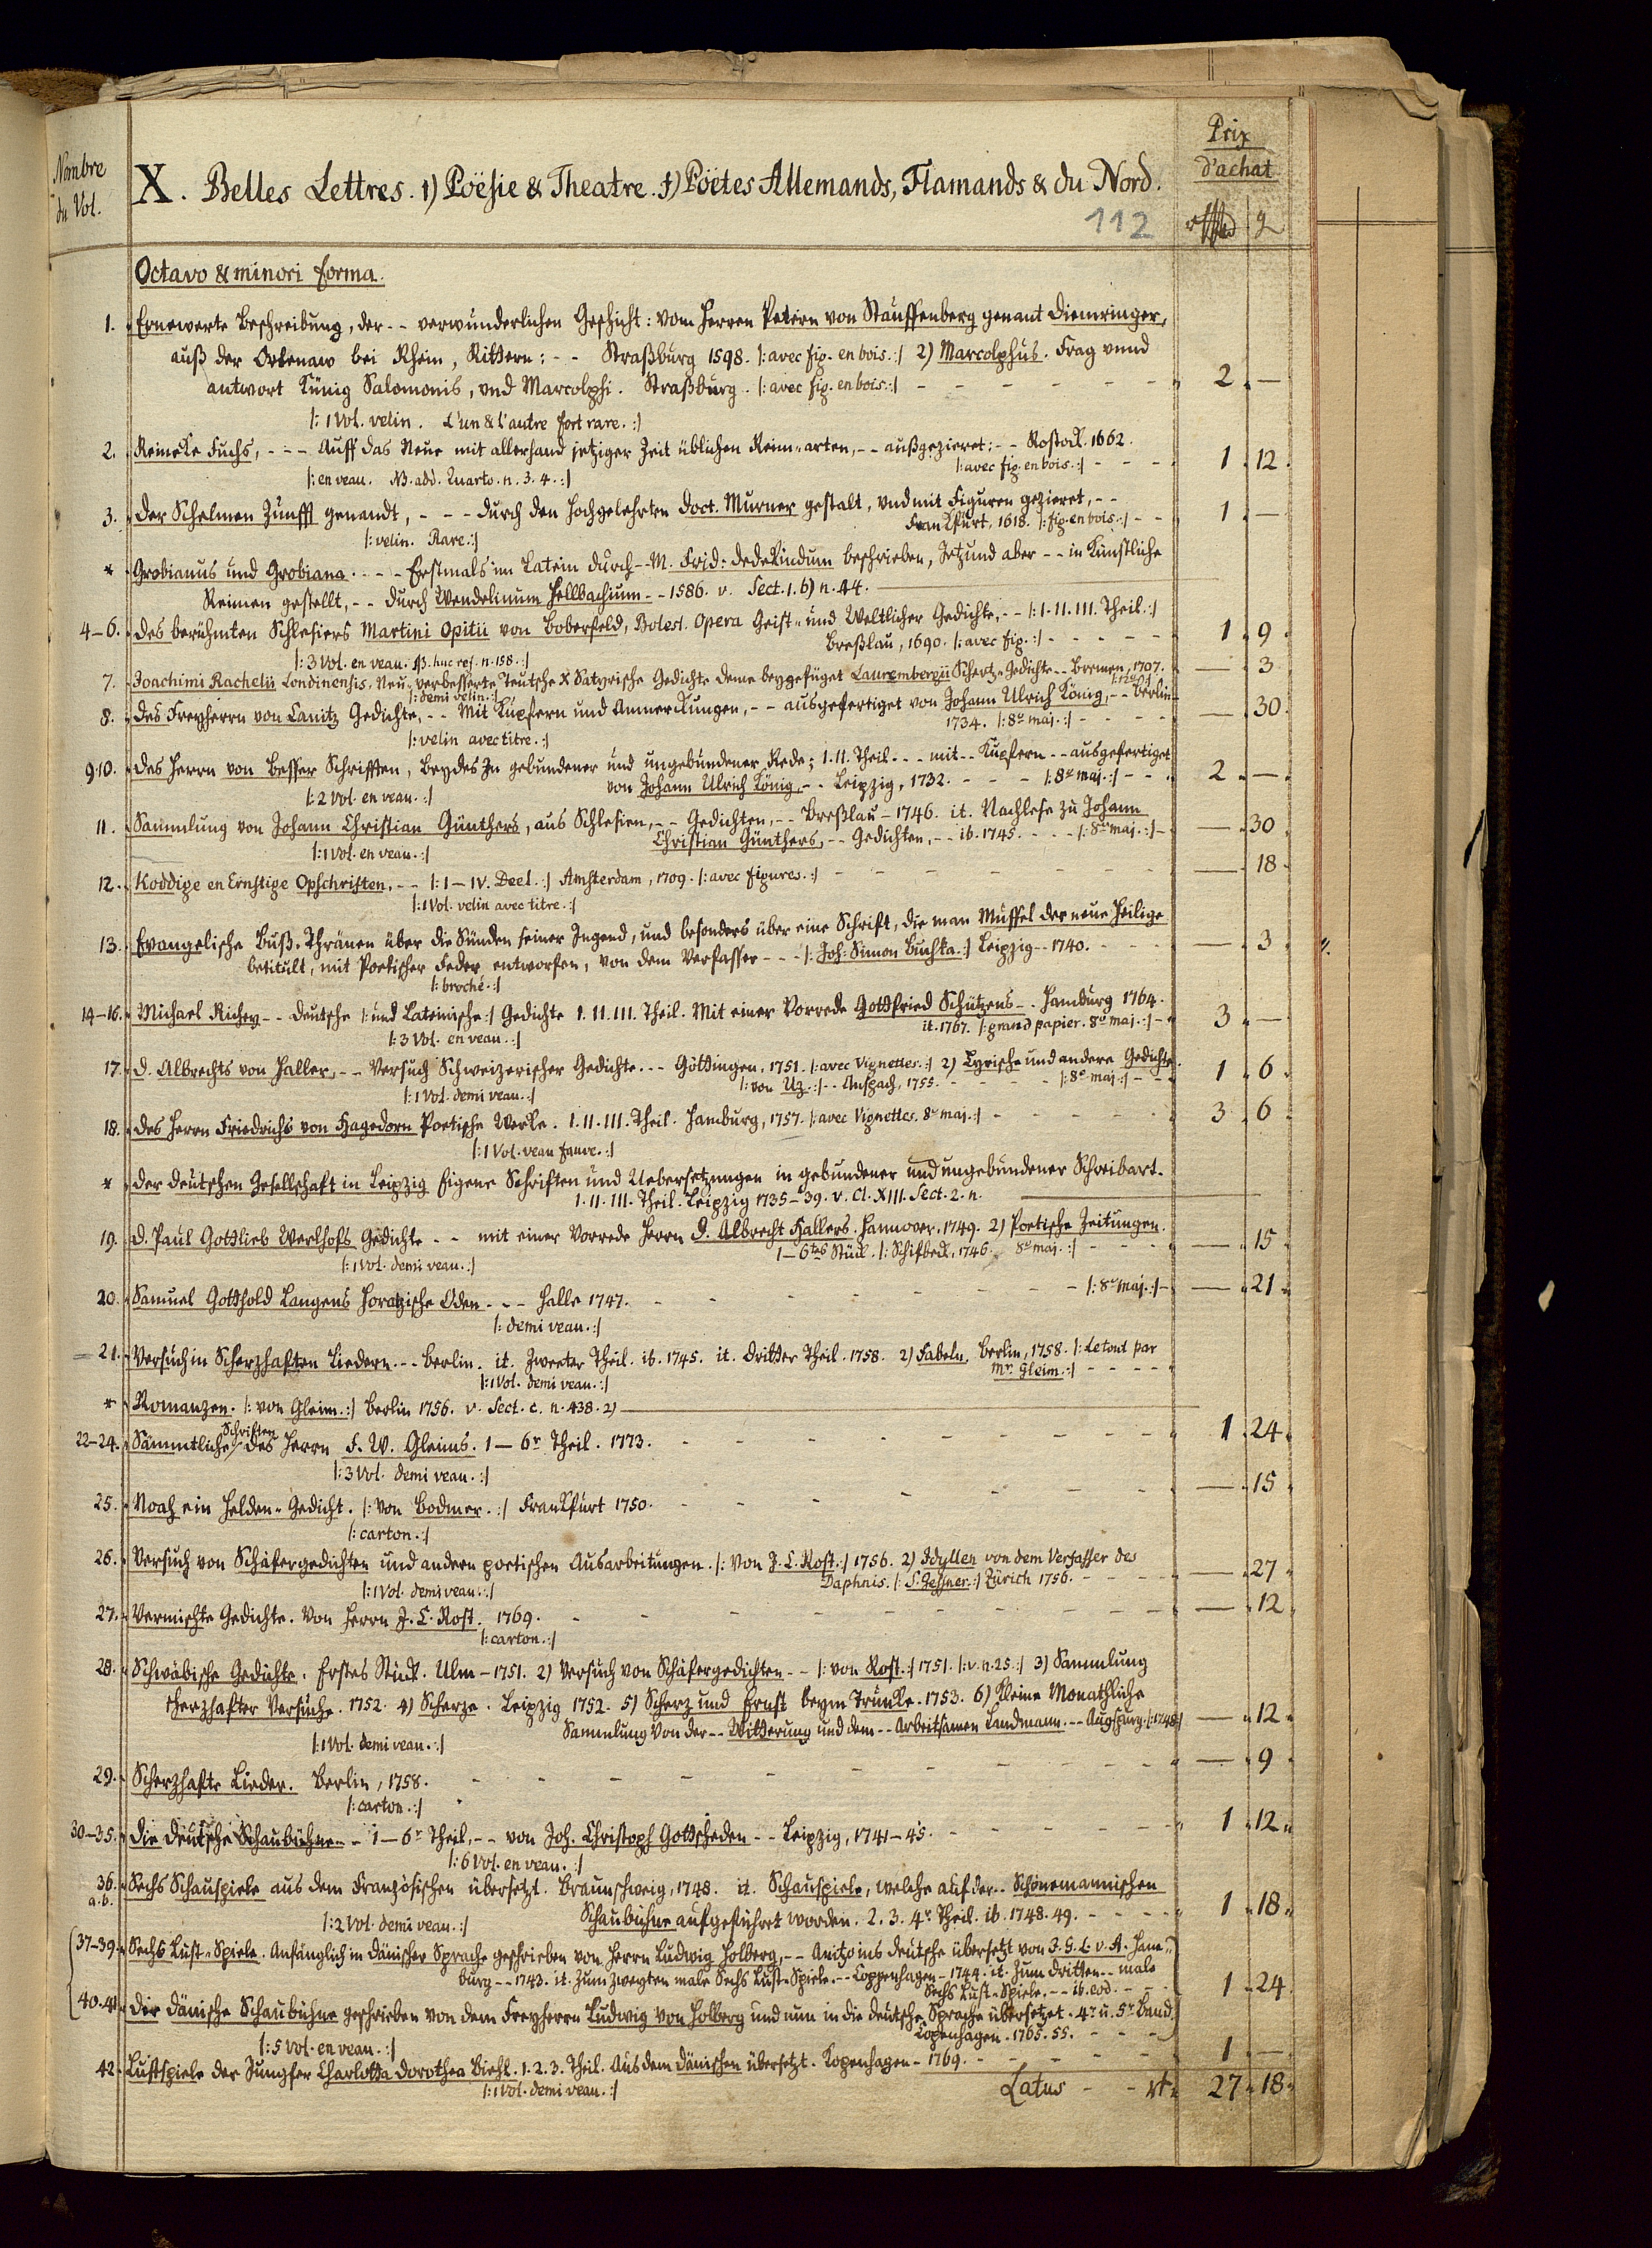 Nombre
du Vol.
X. Belles Lettres. 1) Poësie & Theatre. f) Poëtes Allemands, Flamands & du Nord.
Prix
d'achat
112
Octavo & minori forma.
1. Ernewerte Beschreibung, der -- verwunderlichen Geschicht: vom Herren Petern von Stauffenberg genant Diemringer,
auß der Ortenaw bei Rhein, Rittern: -- Straßburg 1598. |: avec fig. en bois. :| 2) Marcolphus. Frag vnnd
antwort Künig Salomonis, vnd Marcolphi. Straßburg. |: avec fig. en bois. :| 2 —
|: 1 Vol. velin. L'un & l'autre fort rare. :|
2. Reineke Fuchs, --- Auff das Neue mit allerhand jetziger Zeit üblichen Reim-arten, -- außgezieret: -- Rostock. 1662.
|: avec fig. en bois. :| 1 12
|: en veau. NB. add. Quarto. n. 3. 4. :|
3. Der Schelmen Zunfft genandt, --- durch den Hochgelehrten Doct. Murner gestalt, vnd mit Figuren gezieret, --
Frankfurt, 1618. |: fig. en bois. :| 1 —
|: velin. Rare. :|
* Grobianus und Grobiana. --- Erstmals im Latein durch -- M. Frid: Dedekindum beschrieben, Jetzund aber -- in Künstliche
Reimen gestellt, -- durch Wendelinum Hellbachium -- 1586. v. Sect. 1. b) n. 44.
4–6. Des berühmten Schlesiers Martini Opitii von Boberfeld, Bolesl. Opera Geist- und Weltlicher Gedichte, -- |: I. II. III. Theil. :|
Breßlau, 1690. |: avec fig. :| 1 9
|: 3 Vol. en veau. NB. huc ref. n. 158. :|
7. Joachimi Rachelii Londinensis, Neu-verbesserte Teutsche X Satyrische Gedichte deme beygefüget Laurembergii Schertz-Gedichte -- Bremen, 1707. — 3
|: demi velin. :|
8. Des Freyherrn von Canitz Gedichte, -- Mit Kupfern und Anmerkungen, -- ausgefertiget von Johann Ulrich König, -- Berlin
1734. |: 8º maj. :| — 30
|: velin avec titre. :|
9.10. Des Herrn von Besser Schrifften, Beydes In gebundener und ungebundener Rede; I. II. Theil --- mit -- Kupfern -- ausgefertiget
von Johann Ulrich König, -- Leipzig, 1732. --- |: 8º maj. :| 2 —
|: 2 Vol. en veau. :|
11. Sammlung von Johann Christian Günthers, aus Schlesien, -- Gedichten, -- Breßlau - 1746. it. Nachlese zu Johann
Christian Günthers, -- Gedichten, -- ib. 1745. --- |: 8º maj. :| — 30
|: 1 Vol. en veau. :|
12. Koddige en Ernstige Opschriften, -- |: I – IV. Deel. :| Amsterdam, 1709. |: avec figures. :| — 18
|: 1 Vol. velin avec titre. :|
13. Evangelische Buß-Thränen über die Sünden seiner Jugend, und besonders über eine Schrift, die man Muffel der neue Heilige
betitult, mit Poetischer Feder entworfen, von dem Verfasser --- |: Joh: Simon Buchka. :| Leipzig -- 1740. — 3
|: broché. :|
14–16. Michael Richey -- Deutsche |: und Lateinische :| Gedichte I. II. III. Theil. Mit einer Vorrede Gottfried Schützens -- Hamburg 1764.
it. 1767. |: grand papier. 8º maj. :| 3 —
|: 3 Vol. en veau. :|
17. D. Albrechts von Haller, -- Versuch Schweizerischer Gedichte --- Göttingen, 1751. |: avec Vignettes. :| 2) Lyrische und andere Gedichte
|: von Uz. :| -- Anspach, 1755. |: 8º maj :| 1 6
|: 1 Vol. demi veau. :|
18. Des Herrn Friedrichs von Hagedorn Poetische Werke. I. II. III. Theil. Hamburg, 1757. |: avec Vignettes. 8º maj. :| 3 6
|: 1 Vol. veau fauve. :|
* Der deutschen Gesellschaft in Leipzig Eigene Schriften und Uebersetzungen in gebundener und ungebundener Schreibart.
I. II. III. Theil. Leipzig 1735–39. v. Cl. XIII. Sect. 2. n.
19. D. Paul Gottlieb Werlhofs Gedichte -- mit einer Vorrede Herrn D. Albrecht Hallers. Hannover, 1749. 2) Poetische Zeitungen.
1–6tes Stück. |: Schifbeck, 1746. 8º maj. :| — 15
|: 1 Vol. demi veau. :|
20. Samuel Gotthold Langens Horatzische Oden --- Halle 1747. |: 8º maj. :| — 21
|: demi veau. :|
21. Versuch in Scherzhaften Liedern --- Berlin. it. Zweeter Theil. ib. 1745. it. Dritter Theil. 1758. 2) Fabeln, Berlin, 1758. |: Le tout par
Mr. Gleim. :|
|: 1 Vol. demi veau. :|
* Romanzen. |: von Gleim. :| Berlin 1756. v. Sect. c. n. 438. 2)
22–24. Sämmtliche Schriften des Herrn F. W. Gleims. 1–6r Theil. 1773. 1 24
|: 3 Vol. demi veau. :|
25. Noah ein Helden-Gedicht. |: von Bodmer. :| Frankfurt 1750. — 15
|: carton. :|
26. Versuch von Schäfergedichten und andern poetischen Ausarbeitungen. |: von J. C. Rost. :| 1756. 2) Idyllen von dem Verfasser des
Daphnis. |: S. Geßner. :| Zürich 1756. — 27
|: 1 Vol. demi veau. :|
27. Vermischte Gedichte. Von Herrn J. C. Rost. 1769. — 12
|: carton. :|
28. Schwäbische Gedichte. Erstes Stück. Ulm - 1751. 2) Versuch von Schäfergedichten -- |: von Rost. :| 1751. |: v. n. 25. :| 3) Sammlung
scherzhafter Versuche. 1752. 4) Scherze. Leipzig 1752. 5) Scherz und Ernst beym Trunke. 1753. 6) Kleine Monathliche
Sammlung von der -- Witterung und dem -- Arbeitsamen Landmann. -- Augspurg. |: 1748 :| — 12
|: 1 Vol. demi veau. :|
29. Scherzhafte Lieder. Berlin, 1758. — 9
|: carton. :|
30–35. Die Deutsche Schaubühne -- 1–6r Theil, -- von Joh. Christoph Gottscheden -- Leipzig, 1741–45. 1 12
|: 6 Vol. en veau. :|
36. a. b. Sechs Schauspiele aus dem Französischen übersetzt. Braunschweig, 1748. it. Schauspiele, welche auf der -- Schönemannischen
Schaubühne aufgeführet worden. 2. 3. 4r Theil. ib. 1748. 49. 1 18
|: 2 Vol. demi veau. :|
37–39. Sechs Lust-Spiele. Anfänglich in Dänischer Sprache geschrieben von Herrn Ludwig Holberg, -- Anitzo ins Deutsche übersetzt von J. G. L. v. A. Ham-
burg -- 1743. it. Zum zweyten male Sechs Lust-Spiele. -- Coppenhagen - 1744. it. Zum dritten -- male
Sechs Lust-Spiele. -- ib. eod. 1 24
40.41. Die Dänische Schaubühne geschrieben von dem Freyherrn Ludwig von Holberg und nun in die deutsche Sprache übersetzet. 4r u. 5r Band
Copenhagen. 1765. 55.
|: 5 Vol. en veau. :|
42. Lustspiele der Jungfer Charlotta Dorothea Biehl. 1. 2. 3. Theil. Aus dem Dänischen übersetzt. Kopenhagen - 1769. 1 —
|: 1 Vol. demi veau. :|
Latus 27 18